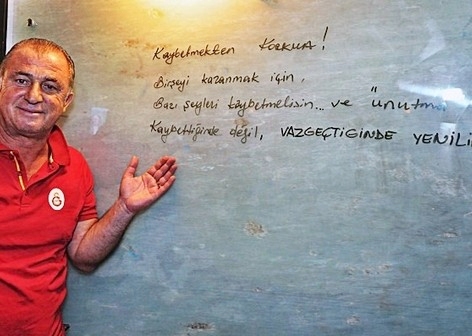 Kaybetmekten KORKMA!
Birşeyi kazanmak için,
Bazı şeyleri kaybetmelisin... ve "Unutma
Kaybettiğinde değil, VAZGEÇTİĞİNDE YENİLİ